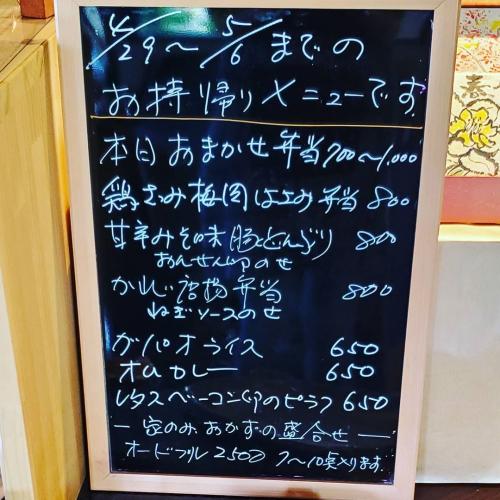 4/29〜5/6までの
お持帰りメニューです。
本日おまかせ弁当700〜1,000
鶏ささみ梅肉はさみ弁当 800
甘辛みその味豚どんぶり 800
おんせん卵のせ
かれい唐揚弁当 800
ねぎソースのせ
ガパオライス 650
オムカレー 650
レタスベーコン卵のピラフ 650
― 家のみ、おかずの盛合せ ―
オードブル 2500 7〜10実入ります。
春